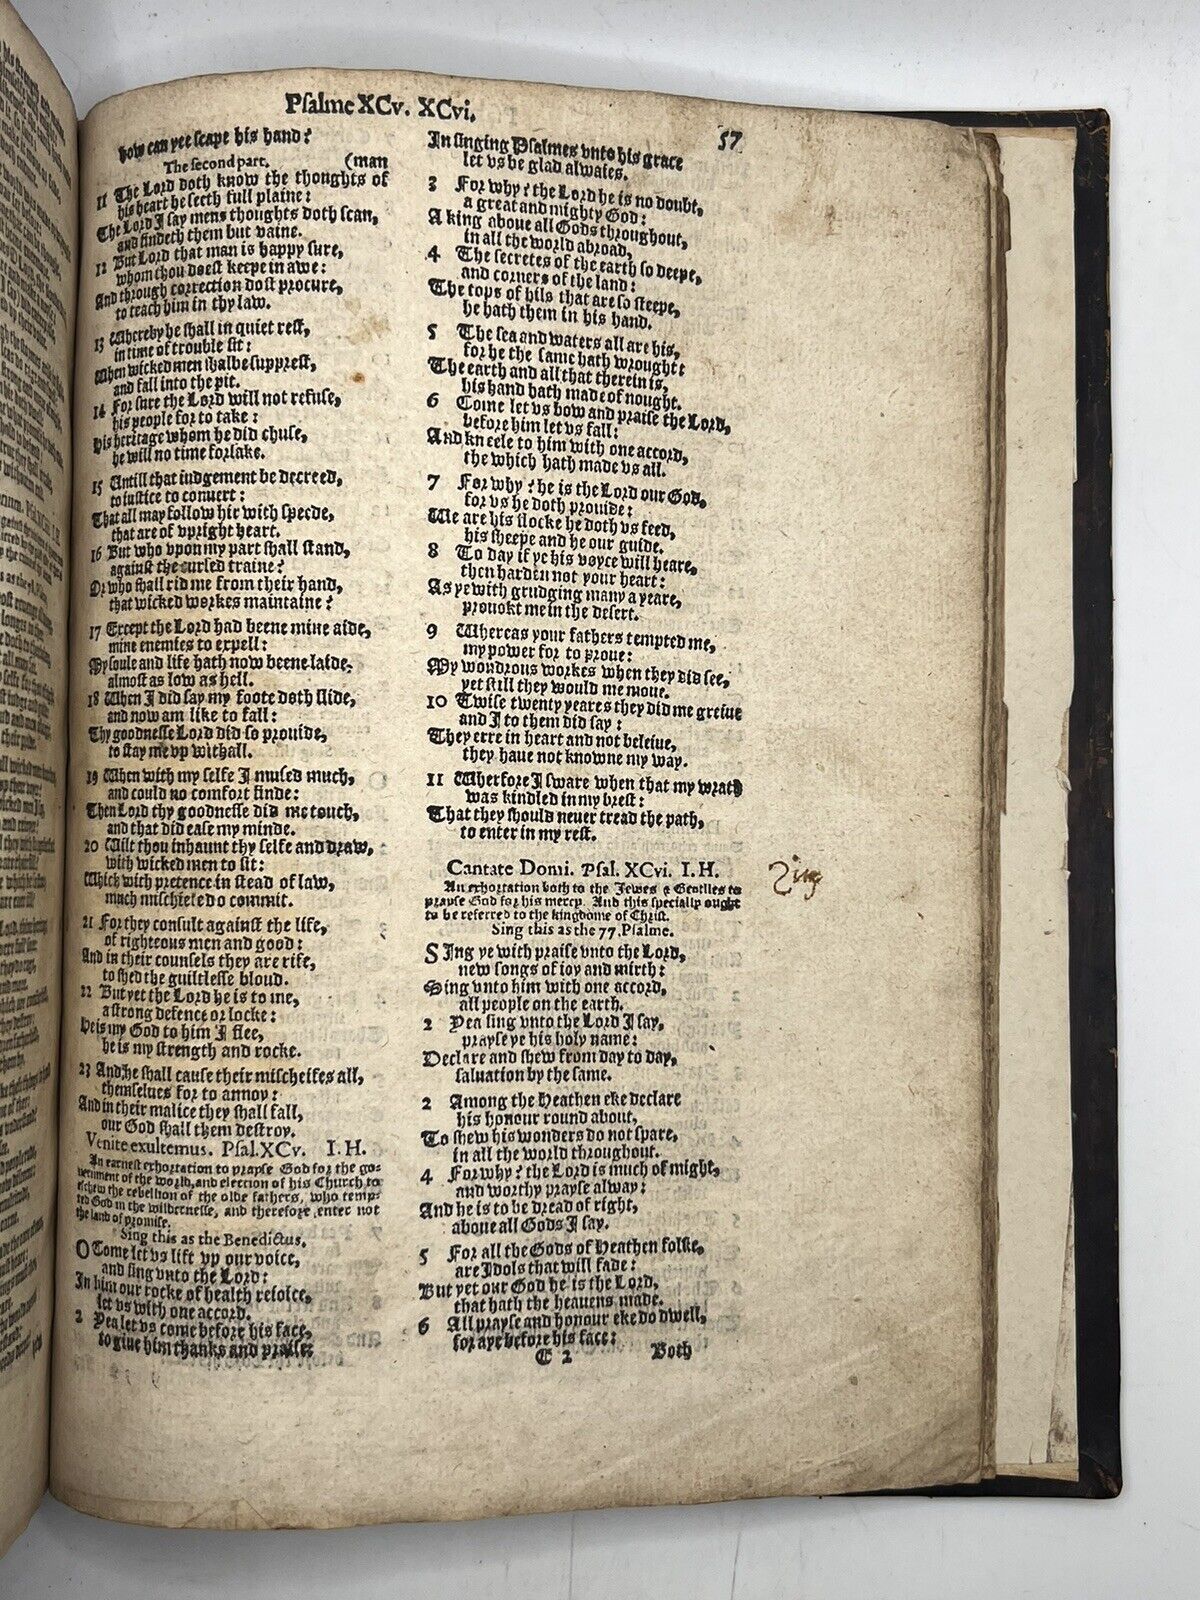 Psalme XCv. XCvi.
57
how can yee scape his hand?
The second part. (man
11 The Lord doth know the thoughts of
his heart he seeth full plaine:
The Lord I say mens thoughts doth scan,
and findeth them but vaine.
12 But Lord that man is happy sure,
whom thou doest keepe in awe:
And through correction dost procure,
to teach him in thy law.
13 Whereby he shall in quiet rest,
in time of trouble sit:
When wicked men shalbe supprest,
and fall into the pit.
14 For sure the Lord will not refuse,
his people for to take:
His heritage whom he did chuse,
he will no time forsake.
15 Untill that iudgement be decreed,
to iustice to conuert:
That all may follow hir with speede,
that are of vpright heart.
16 But who vpon my part shall stand,
against the cursed traine?
Or who shall rid me from their hand,
that wicked workes maintaine?
17 Except the Lord had beene mine aide,
mine enemies to expell:
My soule and life hath now beene laide,
almost as low as hell.
18 When I did say my foote doth slide,
and now am like to fall:
Thy goodnesse Lord did so prouide,
to stay me vp withall.
19 When with my selfe I mused much,
and could no comfort finde:
Then Lord thy goodnesse did me touch,
and that did ease my minde.
20 Wilt thou inhaunt thy selfe and draw,
with wicked men to sit:
Which with pretence in stead of law,
much mischiefe do commit.
21 For they consult against the life,
of righteous men and good:
And in their counsels they are rife,
to shed the guiltlesse bloud.
22 But yet the Lord he is to me,
a strong defence or locke:
He is my God to him I flee,
he is my strength and rocke.
23 And he shall cause their mischeifes all,
themselues for to annoy:
And in their malice they shall fall,
our God shall them destroy.
Venite exultemus. Psal. XCv. I. H.
An earnest exhortation to prayse God for the go-
uernment of the world, and election of his Church to
eschew the rebellion of the olde fathers, who temp-
ted God in the wildernesse, and therefore enter not
the land of promise.
Sing this as the Benedictus.
O Come let vs lift vp our voice,
and sing vnto the Lord:
In him our rocke of health reioice,
let vs with one accord.
2 Yea let vs come before his face,
to giue him thanks and praise:
In singing Psalmes vnto his grace
let vs be glad alwaies.
3 For why? the Lord he is no doubt,
a great and mighty God:
A king aboue all Gods throughout,
in all the world abroad,
4 The secretes of the earth so deepe,
and corners of the land:
The tops of hils that are so steepe,
he hath them in his hand.
5 The sea and waters all are his,
for he the same hath wrought:
The earth and all that therein is,
his hand hath made of nought.
6 Come let vs bow and praise the Lord,
before him let vs fall:
And kneele to him with one accord,
the which hath made vs all.
7 For why? he is the Lord our God,
for vs he doth prouide:
We are his flocke he doth vs feed,
his sheepe and he our guide.
8 To day if ye his voyce will heare,
then harden not your heart:
As ye with grudging many a yeare,
prouokt me in the desert.
9 Whereas your fathers tempted me,
my power for to proue:
My wondrous workes when they did see,
yet still they would me moue.
10 Twise twenty yeares they did me greiue
and I to them did say:
They erre in heart and not beleiue,
they haue not knowne my way.
11 Wherfore I sware when that my wrath
was kindled in my brest:
That they should neuer tread the path,
to enter in my rest.
Cantate Domi. Psal. XCvi. I. H.
An exhortation both to the Jewes & Gentiles to
prayse God for his mercy. And this specially ought
to be referred to the kingdome of Christ.
Sing this as the 77. Psalme.
SIng ye with praise vnto the Lord,
new songs of ioy and mirth:
Sing vnto him with one accord,
all people on the earth.
2 Yea sing vnto the Lord I say,
prayse ye his holy name:
Declare and shew from day to day,
saluation by the same.
2 Among the Heathen eke declare
his honour round about,
To shew his wonders do not spare,
in all the world throughout.
4 For why? the Lord is much of might,
and worthy prayse alway:
And he is to be dread of right,
aboue all Gods I say.
5 For all the Gods of Heathen folke,
are Idols that will fade:
But yet our God he is the Lord,
that hath the heauens made.
6 All prayse and honour eke do dwell,
for aye before his face:
E 2 Both